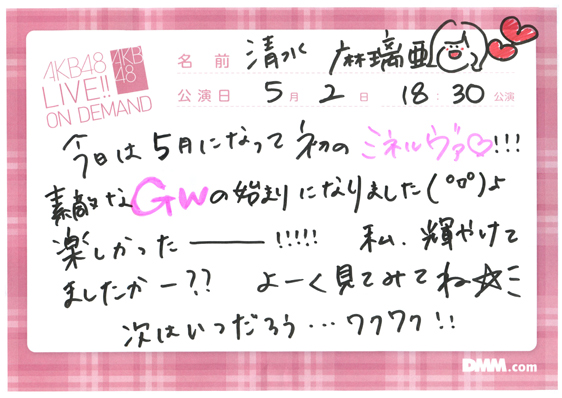 AKB48
LIVE!!
ON DEMAND
AKB
48
名前 清水 麻璃亜
公演日 5月2日 18:30公演
今日は5月になって初のミネルヴァ♡!!!
素敵なGWの始まりになりました(°o°)よ
楽しかったーーー!!!!! 私、輝やけて
ましたかー?? よーく見てみてね☆ミ
次はいつだろう…ワクワク!!
DMM.com